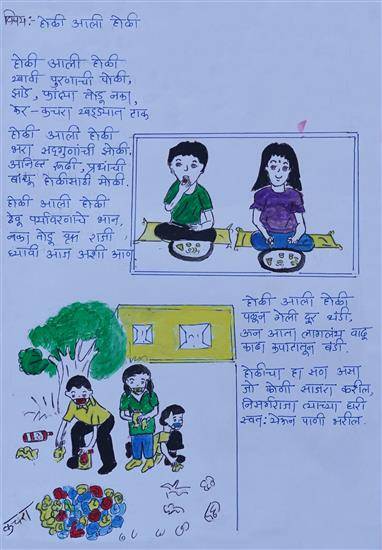 विषय:- होळी आली होळी
होळी आली होळी
खावी पुरणाची पोळी,
झाडे, फांद्या तोडू नका,
केर-कचरा खड्ड्यात टाक
होळी आली होळी
भरा सद्गुणांची झोळी.
अनिष्ट रूढी, प्रथांची
बांधू होळीसाठी मोळी.
होळी आली होळी
ठेवू पर्यावरणाचे भान,
नका तोडू वृक्ष राजी
घ्यावी आज अशी आण
होळी आली होळी
पळून गेली दूर थंडी,
ऊन आता लागलंय वाढू
काढा कपाटातून बंडी.
होळीचा हा सण असा
जो कोणी साजरा करील,
निसर्गराजा त्याच्या घरी
स्वत: येऊन पाणी भरील.
कचरा